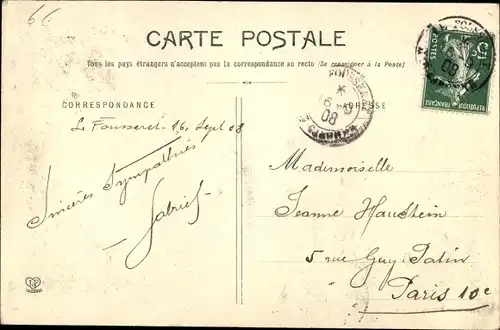 6c
CARTE POSTALE
Tous les pays étrangers n'acceptent pas la correspondance au recto (Se renseigner à la Poste)
CORRESPONDANCE
ADRESSE
Le Fousseret. 16. Sept 08
Sincères Sympathies
Gabriel
Mademoiselle
Jeanne Haustein
5 rue Guy-Patin
Paris 10e
POSTES
REPUBLIQUE FRANÇAISE
5